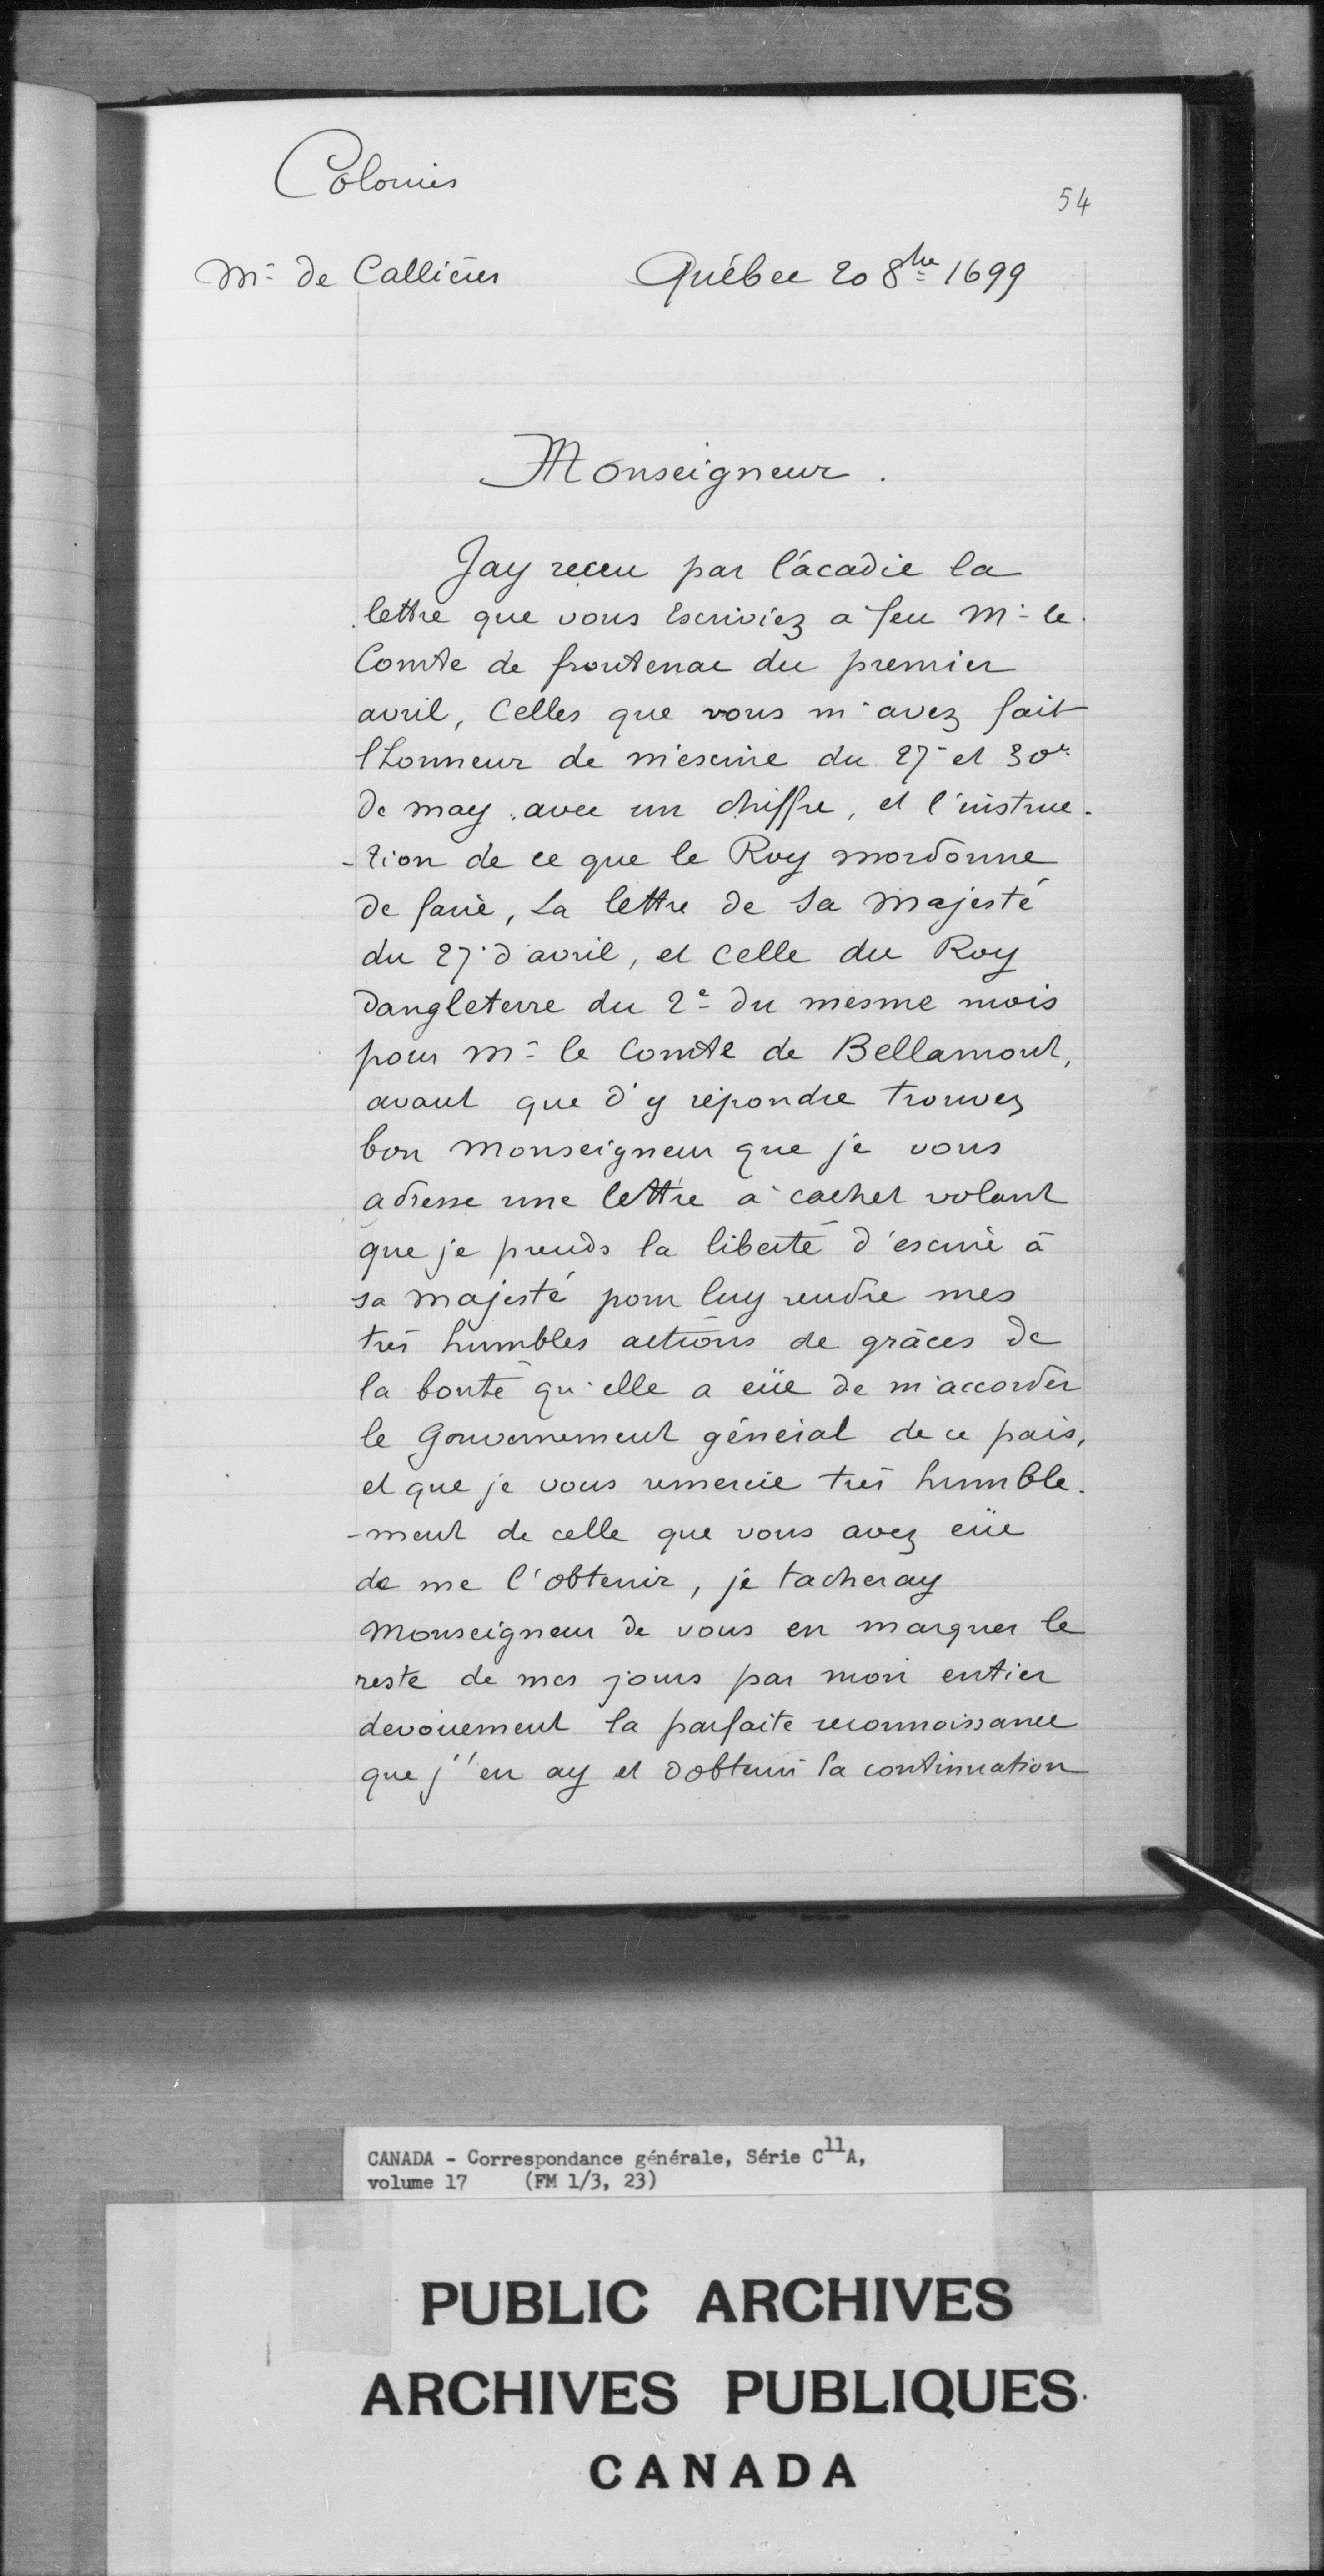 Colonies
54
Mr de Callières Québec 20 8bre 1699
Monseigneur.
Jay receu par l'acadie la
lettre que vous Escriviez a feu Mr le
Comte de frontenac du premier
avril, Celles que vous m'avez fait
l'honneur de m'escrire du 27e et 30e
de may avec un chiffre, et l'instruc-
-tion de ce que le Roy mordonne
de faire, La lettre de Sa Majesté
du 27 d'avril, et Celle du Roy
dangleterre du 2e du mesme mois
pour Mr le Comte de Bellamont,
avant que d'y répondre trouvez
bon Monseigneur que je vous
adresse une lettre à cachet volant
que je prends la liberté d'escrire à
sa Majesté pour luy rendre mes
très humbles actions de grâces de
la bonté qu'elle a eüe de m'accorder
le Gouvernement général de ce païs,
et que je vous remercie très humble-
-ment de celle que vous avez eüe
de me l'obtenir, je tacheray
Monseigneur de vous en marquer le
reste de mes jours par mon entier
devouement la parfaite reconnoissance
que j'en ay et dobtenir la continuation
CANADA - Correspondance générale, Série C11A,
volume 17 (FM 1/3, 23)
PUBLIC ARCHIVES
ARCHIVES PUBLIQUES
CANADA